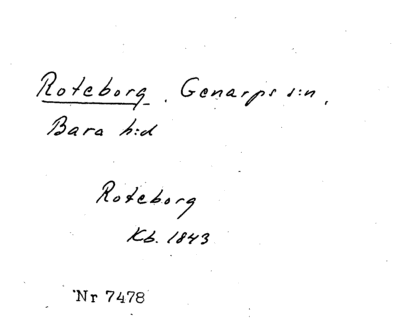 Roteborg, Genarps s:n,
Bara h:d
Roteborg
Kb. 1843
Nr 7478